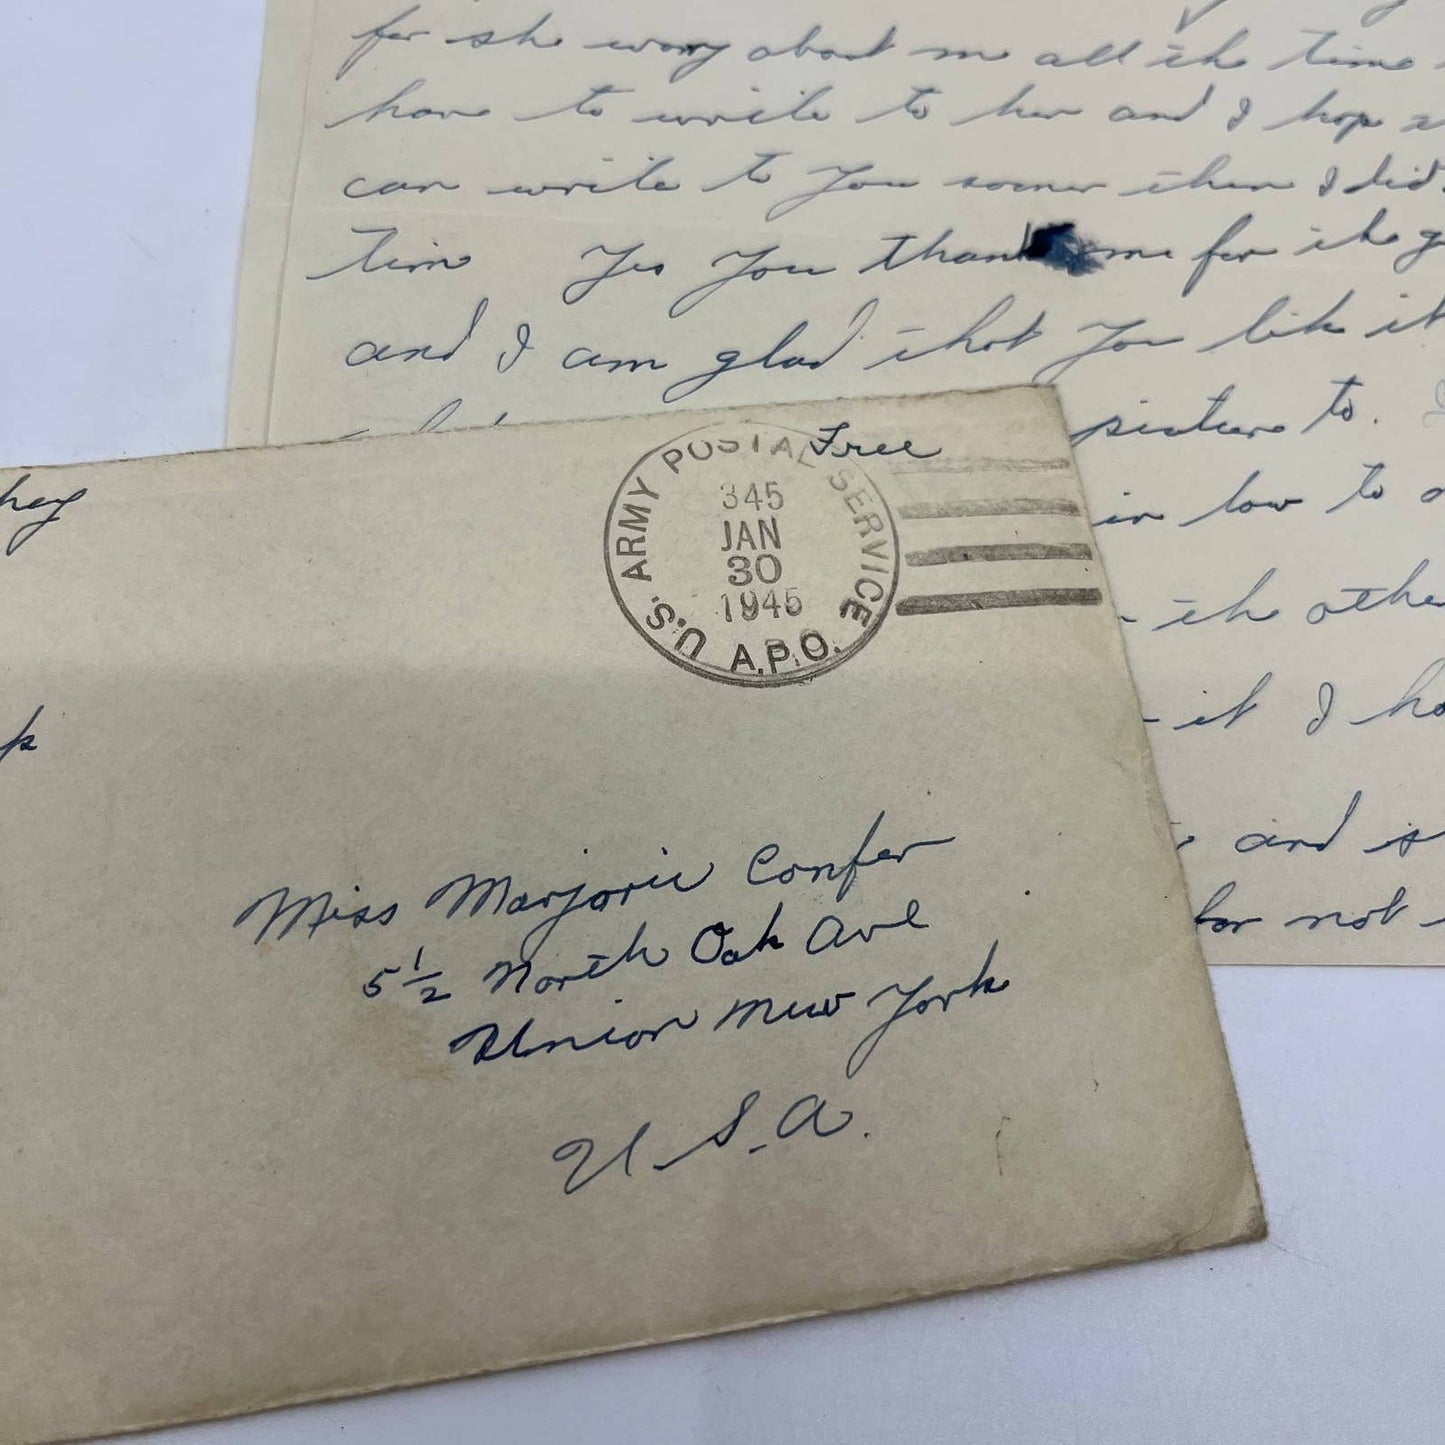 for she worry about me all the time
have to write to her and I hop
can write to you sooner then I did
tim Yes you thank me for the
and I am glad that you lik it
picture to.
in law to
the other
it I
and
for not
Free
U.S. ARMY POSTAL SERVICE
345
JAN
30
1945
A.P.O.
hey
Miss Marjorie Confer
5 1/2 North Oak Ave
Union New York
U.S.A.